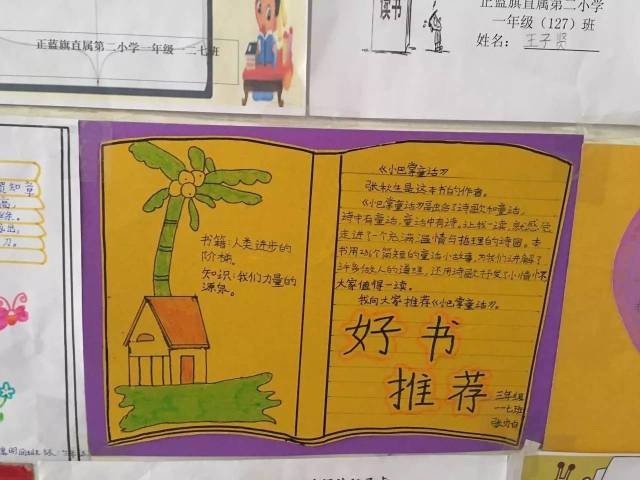 正蓝旗直属第二小学一年级 一二七班
读书
正蓝旗直属第二小学
一年级（127）班
姓名：王子贤
书籍：人类进步的
阶梯。
知识：我们力量的
源泉。
《小巴掌童话》
张秋生是这本书的作者。
《小巴掌童话》融合了诗歌和童话，
诗中有童话，童话中有诗。让我一读，就感觉
走进了一个充满温情与哲理的诗国。本
书用236个简短的童话小故事，为我们讲解了
许多做人的道理，还用诗歌抒发了小情怀
大家值得一读。
我向大家推荐《小巴掌童话》。
好书
推荐
三年级
一七班